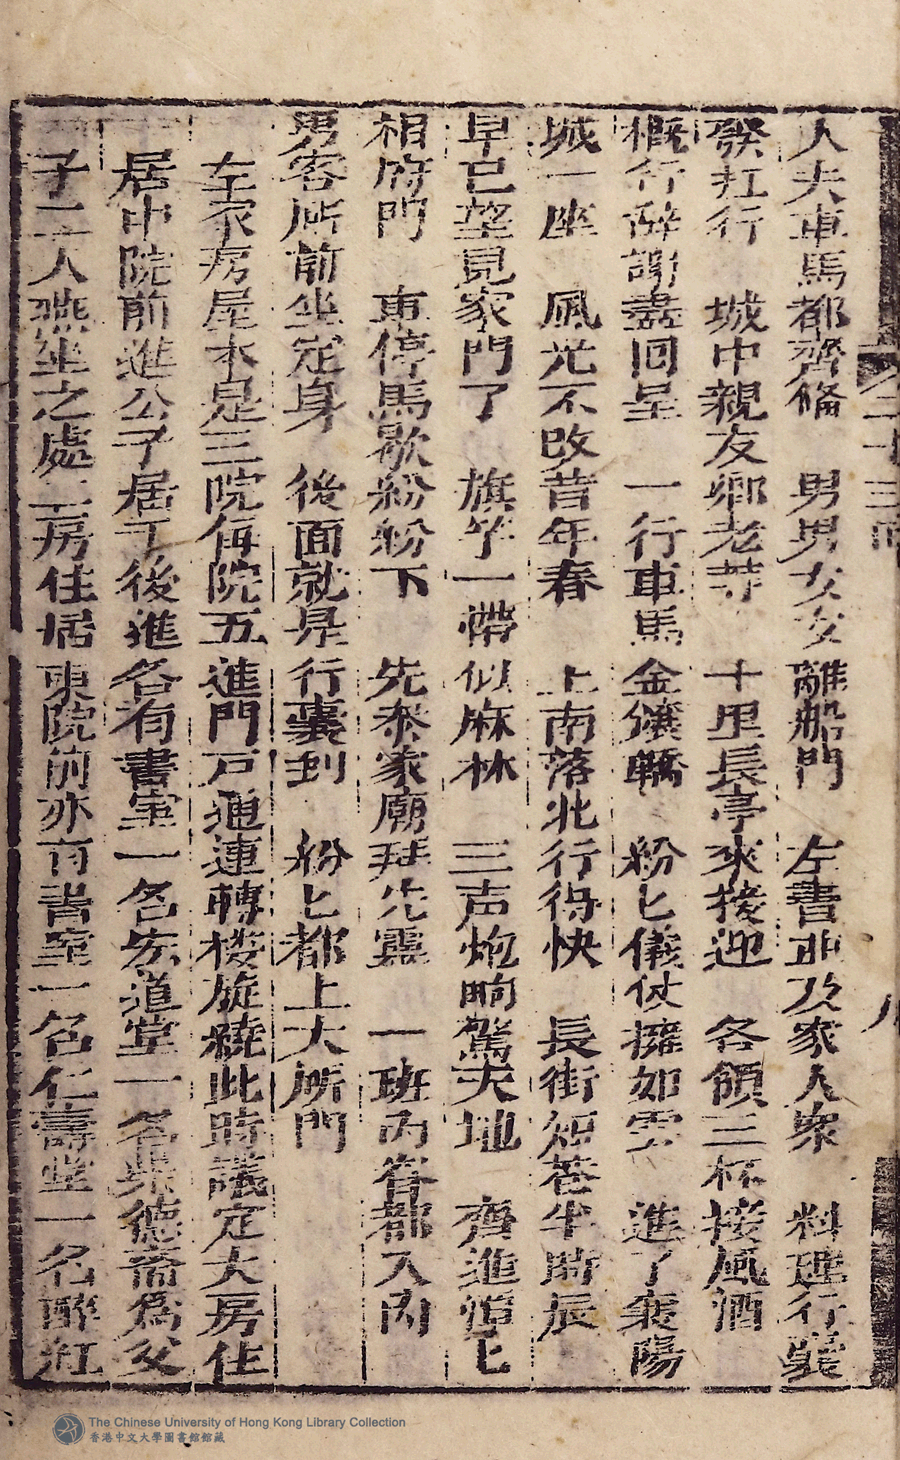 二十三回
八
人夫車馬都齊俻　男男女女離船門　左書正及家人衆　料理行裝
發扛行　城中親友鄉老等　十里長亭來接迎　各領三杯接風酒
概行辞謝盡回呈　一行車馬金鑲轎　紛匕儀仗擁如雲　進了襄陽
城一座　風光不改昔年春　上南落北行得快　長街短巷半時辰
早已望見家門了　旗竿一帶似麻林　三声炮响驚天地　齊進恒匕
相府門　車停馬歇紛紛下　先泰家廟拜先靈　一班内眷都入內
男客所前坐定身　後面就是行囊到　紛匕都上大所門
左家房屋本是三院每院五進門戸通連轉楼旋繞此時議定大房住
居中院前進公子居于後進各有書室一名宏道堂一名崇德斋為父
子二人燕坐之處二房住居東院前亦有書室一名仁壽堂一名醉紅
The Chinese University of Hong Kong Library Collection
香港中文大學圖書館館藏